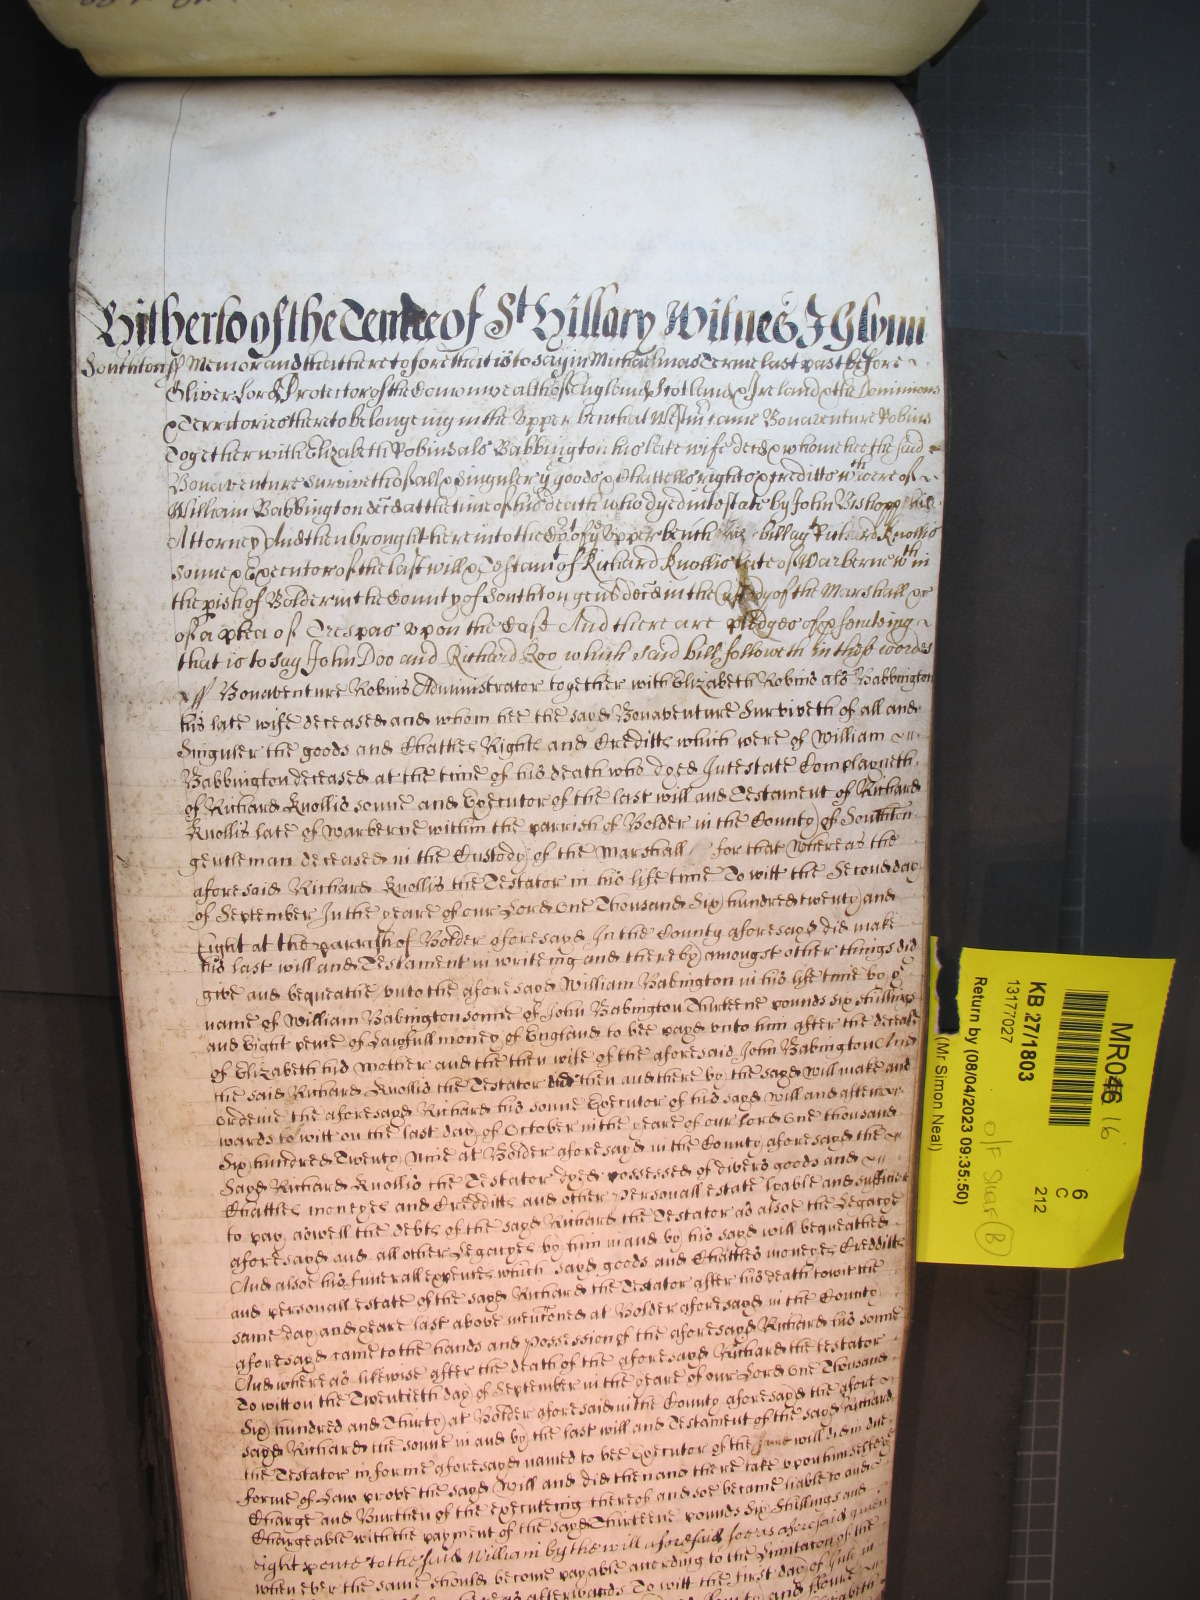 Hitherto of the Terme of St Hillary Witnes J Glynn
Southton ss Memorand that heretofore that is to say in Michaelmas Terme last past before
Oliver Lord Protector of the Comonwealth of England Scotland & Ireland & the Dominions
& Territories thereto belongeing in the Upper bench at Westmr came Bonaventure Robins
together with Elizabeth Robins als Babbington his late wife decd & whome hee the said
Bonaventure Surviveth of all & singuler ye goods & Chattells rights & creditts wch were of
William Babbington decd at the time of his death who dyed intestate by John Bishopp his
Attorney And then brought here into the Cot of ye Upper bench his bill agt Richard Knollis
sonne & Executor of the last will & Testamt of Richard Knollis late of Warberne wthin
the pish of Bolder in the County of Southton gent decd in the Custody of the Marshall &c
of a plea of Trespas upon the Case And there are pledges of prseuteing
that is to say John Doo and Richard Roo which said bill followeth in these wordes
ss Bonaventure Robins Administrator together with Elizabeth Robins als Babbington
his late wife deceased and whom hee the sayd Bonaventure Surviveth of all and
Singuler the goods and Chattles Rights and Creditts which were of William
Babbington deceased at the time of his death who dyed Intestate Complayneth
of Richard Knollis sonne and Executor of the last will and Testament of Richard
Knollis late of Warberne within the parrish of Bolder in the County of Southton
gentleman deceased in the Custody of the Marshall for that Whereas the
aforesaid Richard Knollis the Testator in his life time To witt the Second day
of September In the yeare of our Lord One Thousand Six hundred twenty and
Eight at the parrish of Bolder aforesayd In the County aforesayd did make
his last will and Testament in writeing and thereby amongst other things did
give and bequeathe unto the aforesayd William Babington in his life time by ye
name of William Babington sonne of John Babington Thirteene pounds six shillings
and Eight pence of Lawfull money of England to bee payd unto him after the decease
of Elizabeth his Mother and the then wife of the aforesaid John Babington And
the said Richard Knollis the Testator did then and there by the sayd will make and
ordeine the aforesayd Richard his sonne Executor of his sayd will and after
wards to witt on the last day of October in the yeare of our lord One thousand
Six hundred Twenty Nine at Bolder aforesayd in the County aforesayd the
Sayd Richard Knollis the Testator dyed possessed of divers goods and
Chattles moneyes and Credditts and other personall estate lyable and sufficient
to pay aswell the debts of the sayd Richard the Testator as alsoe the Legacye
aforesayd and all other Legacyes by him in and by his sayd will bequeathed
And alsoe his funerall expences which sayd goods and Chattles moneyes Credditts
and personall estate of the sayd Richard the Testator after his death to witt the
same day and yeare last above mencioned at Bolder aforesayd in the County
aforesayd came to the hands and possession of the aforesayd Richard his sonne
And whereas likewise after the death of the aforesayd Richard the testator
To witt on the Twentieth day of September in the yeare of our Lord One Thousand
Six hundred and Thirty at Bolder aforesaid in the County aforesayd the afore
sayd Richard the sonne in and by the last will and Testament of the sayd Richard
the Testator in forme aforesayd named to bee Executor of the same will did in due
forme of Law prove the sayd Will and did then and there take upon himselfe ye
Charge and Burthen of the executeing thereof and soe became liable to and
Chargeable with the payment of the sayd Thirteene pounds Six Shillings and
eight pence to the said William by the will aforesaid soe as aforesaid given
when ever the same should become payable according to the Limitacon of the
afterwards To witt the first day of July in
MR046 16
KB 27/1803
13177027
Return by (08/04/2023 09:35:50)
(Mr Simon Neal)
6
C
212
O/F Star (B)